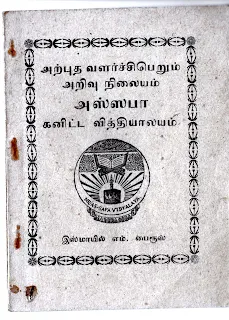 அற்புத வளர்ச்சிபெறும்
அறிவு நிலையம்
அஸ்ஸபா
கனிட்ட வித்தியாலயம்
இஸ்மாயில் எம். பைரூஸ்